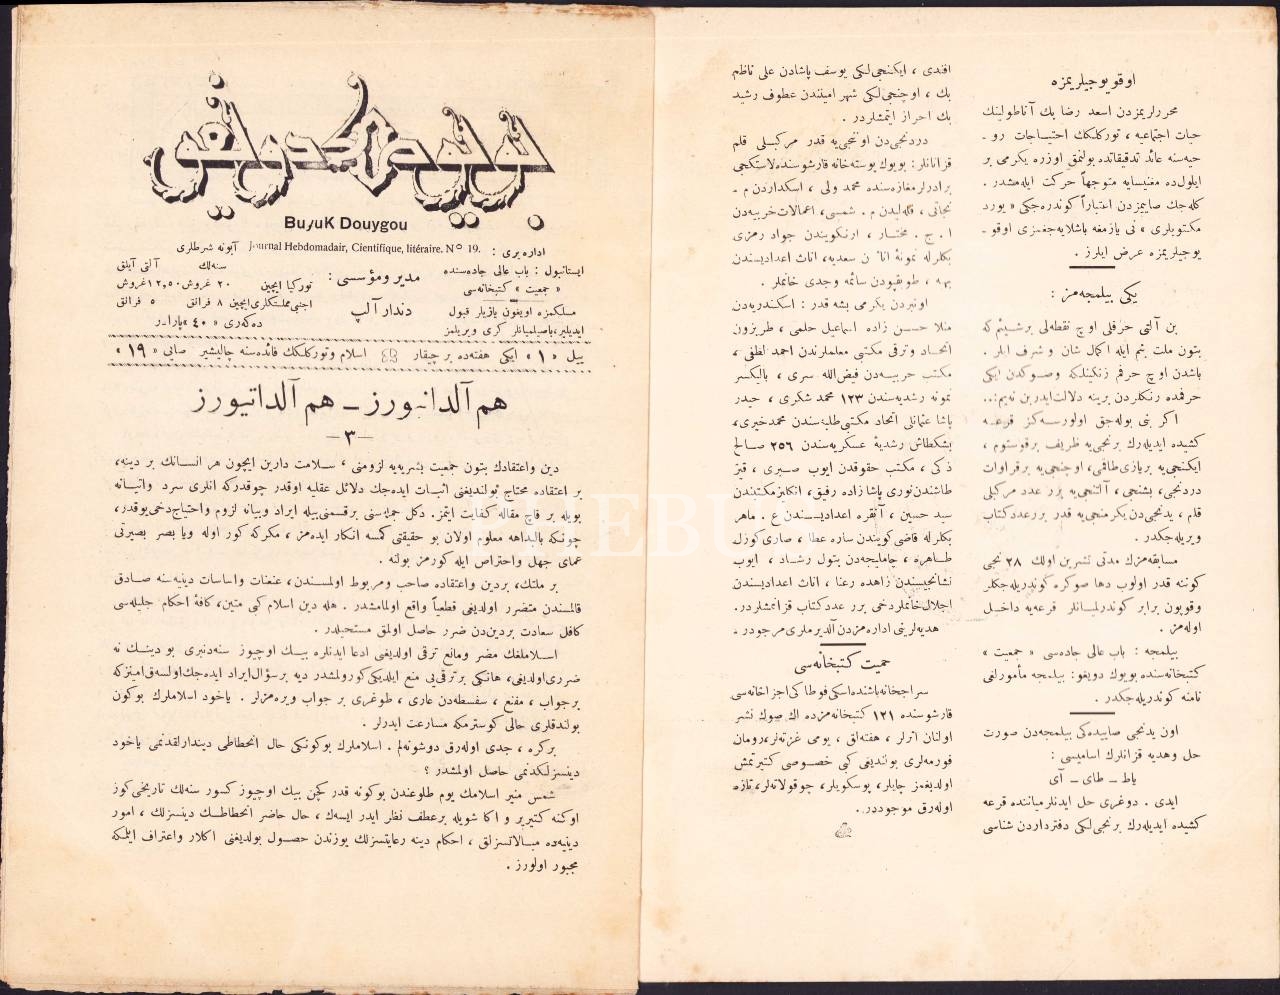 بویوك دویغو
BuyuK Douygou
Journal Hebdomadair, Cientifique, litéraire. No 19.
اداره یری :
ایستانبول : باب عالی جاده‌سنده
« جمعیت » كتبخانه‌سی
مسلكمزه اویغون یازیلر قبول
ایدیلیر، باصیلمیانلر كری ویریلمز
مدیر ومؤسسی :
دندار آلپ
آبونه شرطلری
سنه‌لك آلتی آیلق
توركیا ایچین ۲۰ غروش ۱۲,۵۰ غروش
اجنبی مملكتلری ایچین ۸ فرانق ۵ فرانق
ده‌كه‌ری « ۴۰ » پارا‌در
ییل « ۱ » ایكی هفته‌ده بر چیقار اسلام وتوركلكك فائده‌سنه چالیشیر صایی « ۱۹ »
هم آلدانیورز ـ هم آلداتیورز
ـ۳ـ
دین واعتقادك بتون جمعیت بشریه‌یه لزومنی ، سلامت دارین ایچون هر انسانك بر دینه،
بر اعتقاده محتاج بولندیغنی اثبات ایده‌جك دلائل عقلیه اوقدر چوقدركه انلری سرد واتیانه
بویله بر قاچ مقاله كفایت ایتمز. دكل جمله‌سنی برقسمنی بیله ایراد وبیانه لزوم واحتیاج دخی یوقدر،
چونكه بالبداهه معلوم اولان بو حقیقتی كمسه انكار ایده‌مز ، مكركه كور اوله ویا بصر بصیرتی
عمای جهل واحتراص ایله كورمز بولنه
بر ملتك، بردین واعتقاده صاحب ومربوط اولمسندن، عنعنات واساسات دینیه‌سنه صادق
قالمسندن متضرر اولدیغی قطعیاً واقع اولمامشدر . هله دین اسلام كی متین، كافۀ احكام جلیله‌سی
كافل سعادت بردین‌دن ضرر حاصل اولمق مستحیلدر .
اسلاملغك مضر ومانع ترقی اولدیغنی ادعا ایدنلره بیك اوچیوز سنه‌دنبری بو دینك نه
ضرری اولدیغی، هانكی برترقی‌یی منع ایلدیكی كورولمشدر دیه برسؤال ایراد ایده‌جك اولسه‌ق امینزكه
برجواب ، مقنع ، سفسطه‌دن عاری ، طوغری بر جواب ویره‌مزلر . یاخود اسلاملرك بوكون
بولندقلری حالی كوسترمكه مسارعت ایدرلر .
بركره ، جدی اوله‌رق دوشونه‌لم . اسلاملرك بوكونكی حال انحطاطی دیندارلقدنمی یاخود
دینسزلكدنمی حاصل اولمشدر ؟
شمس منیر اسلامك یوم طلوعندن بوكونه قدر كچن بیك اوچیوز كسور سنه‌لك تاریخی كوز
اوكنه كتیریر و اكا شویله برعطف نظر ایدر ایسه‌ك ، حال حاضر انحطاطك دینسزلك ، امور
دینیه‌ده مبالاتسزلق ، احكام دینه رعایتسزلك یوزندن حصول بولدیغنی اكلار واعتراف ایلمكه
مجبور اولورز .
اوقویوجیلریمزه
محررلریمزدن اسعد رضا بك آناطولینك
حیات اجتماعیه ، توركلكك احتیاجات رو ـ
حیه‌سنه عائد تدقیقاتده بولنمق اوزره یكرمی بر
ایلول‌ده مغنیسایه متوجهاً حركت ایله‌مشدر .
كله‌جك صاییمزدن اعتباراً كوندره‌جكی « یورد
مكتوبلری » نی یازمغه باشلایه‌جغنی اوقو ـ
یوجیلریمزه عرض ایلرز .
یكی بیلمجه‌مز :
بن آلتی حرفلی اوچ نقطه‌لی برشیئم كه
بتون ملت بنم ایله اكمال شان و شرف ایلر .
باشدن اوچ حرفم زنكینلكه وصوكدن ایكی
حرفمده رنكلردن برینه دلالت ایدر بن نه‌یم:..
اكر بنی بوله‌جق اولورسه‌كز قرعه
كشیده ایدیله‌رك برنجی‌یه ظریف برقوستوم ،
ایكنجی‌یه بریازی طاقمی، اوچنجی‌یه برقراوات
دردنجی، بشنجی ، آلتنجی‌یه برر عدد مركبلی
قلم ، یدنجی‌دن یكرمنجی‌یه قدر بررعدد كتاب
ویریله‌جكدر .
مسابقه‌مزك مدتی تشرین اولك ۲۸ نجی
كوننه قدر اولوب دها صوكره كوندریله‌جكلر
وقوپون برابر كوندرلمیانلر قرعه‌یه داخل
اوله‌مز .
بیلمجه : باب عالی جاده‌سی « جمعیت »
كتبخانه‌سنده بویوك دویغو: بیلمجه مأمورلغی
نامنه كوندریله‌جكدر .
اون یدنجی صاییده‌كی بیلمجه‌دن صورت
حل وهدیه قزانلرك اسامیسی :
یاط ـ طای ـ آی
ایدی . دوغری حل ایدنلرمیاننده قرعه
كشیده ایدیله‌رك برنجی‌لكی دفترداردن شناسی
افندی ، ایكنجی‌لكی یوسف پاشادن علی ناظم
بك ، اوچنجی‌لكی شهر امینندن عطوف رشید
بك احراز ایتمشلردر .
دردنجی‌دن اوننجی‌یه قدر مركبلی قلم
قزانانلر: بویوك پوسته‌خانه قارشوسنده لاستكجی
برادرلر مغازه‌سنده محمد ولی ، اسكداردن م ـ
نجاتی ، قله‌لیدن م . شمسی، اعمالات حربیه‌دن
ا . ج . مختار ، ارنكویندن جواد رمزی
بكلرله نمونۀ اناث‌دن سعدیه، اناث اعدادیسندن
بهیه ، طوپقپودن سائمه وجدی خانملر .
اونبردن یكرمی بشه قدر : اسكندریه‌دن
منلا حسن زاده اسماعیل حلمی ، طربزون
اتحاد وترقی مكتبی معلملرندن احمد لطفی ،
مكتب حربیه‌دن فیض‌الله سری ، بالیكسر
نمونه رشدیه‌سندن ۱۲۳ محمد شكری ، حیدر
پاشا عثمانلی اتحاد مكتبی طلبه‌سندن محمد خیری،
بشكطاش رشدیۀ عسكریه‌سندن ۲۵۶ صالح
ذكی ، مكتب حقوقدن ایوب صبری ، قیز
طاشندن نوری پاشا زاده رفیق، انكلیز مكتبندن
سید حسین ، آنقره اعدادیسندن ع . ماهر
بكلرله قاضی كویندن ساره عطا ، صاری كوزل
طاهره ، چاملیجه‌دن بتول رشاد ، ایوب
نشانجیسندن زاهده رعنا ، اناث اعدادیسندن
اجلال خانملر دخی برر عدد كتاب قزانمشلردر .
هدیه‌لرینی اداره‌مزدن آلدیرملری مرجودر .
حمیت كتبخانه‌سی
سراجخانه باشنده اسكی فوطاكی اجزاخانه‌سی
قارشوسنده ۱۲۱ كتبخانه‌مزده اك صوك نشر
اولنان اثرلر ، هفته‌لق ، یومی غزته‌لر، رومان
فورمه‌لری بولندیغی كی خصوصی كتیرتمش
اولدیغمز چایلر، پوسكویلر، چوقولاته‌لر، تازه
اوله‌رق موجوددر.
PHEBUS